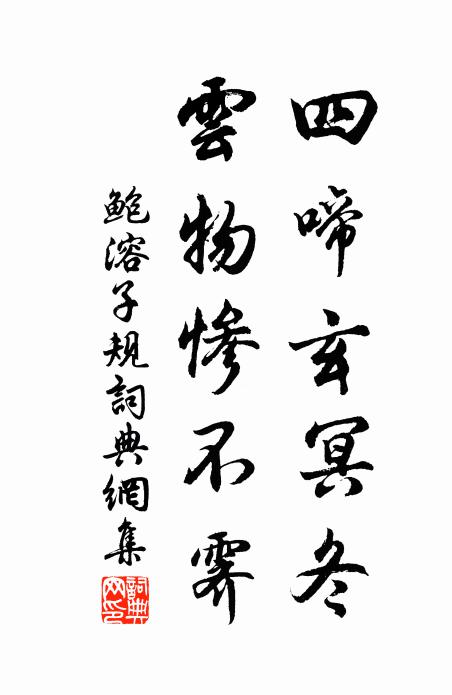 四啼玄冥冬
雲物慘不霽
鮑溶子規詞典網集